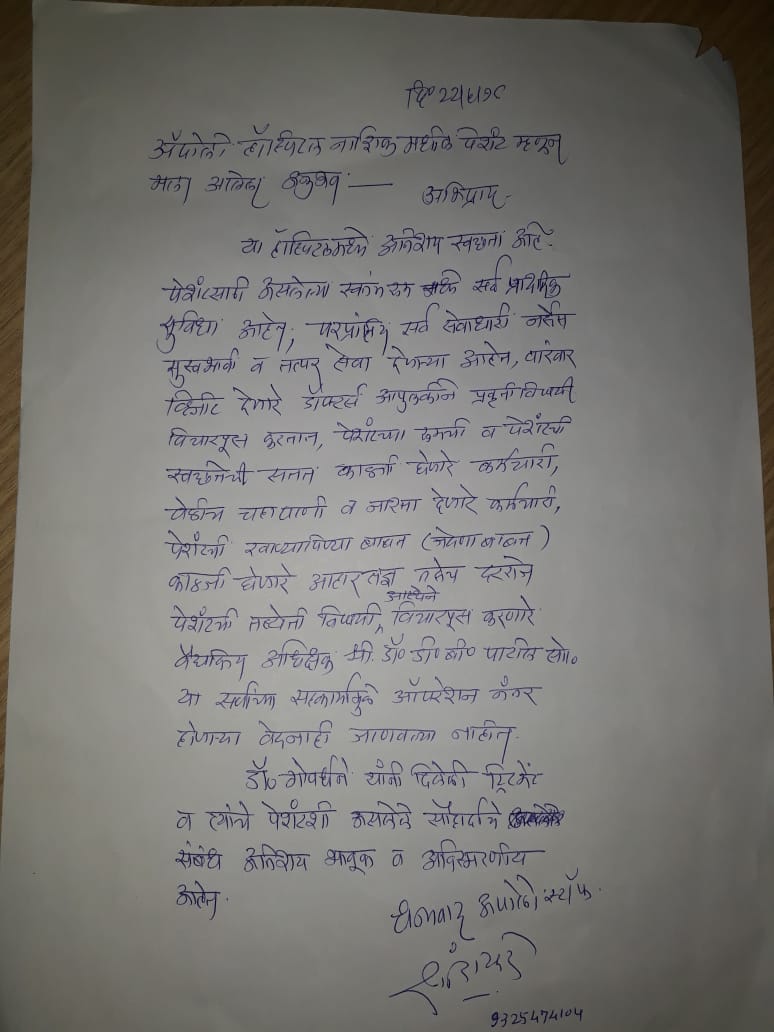 दि० २२/६/१८
अ‍ॅपोलो हॉस्पिटल नाशिक मधील पेशंट म्हणून
मला आलेला अनुभव —
अभिप्राय -
या हॉस्पिटलमध्ये अतिशय स्वच्छता आहे.
पेशंटसाठी असलेल्या स्वतंत्र रूम मध्ये सर्व प्राथमिक
सुविधा आहेत, परप्रांतिय सर्व सेवाधारी नर्सेस
सुस्वभावी व तत्पर सेवा देणाऱ्या आहेत, वारंवार
व्हिजीट देणारे डॉक्टर्स आपुलकीने प्रकृती विषयी
विचारपूस करतात, पेशंटच्या रूमची व पेशंटची
स्वच्छतेची सतत काळजी घेणारे कर्मचारी,
वेळेत चहापाणी व नास्ता देणारे कर्मचारी,
पेशंटची खाण्यापिण्या बाबत (जेवणा बाबत)
काळजी घेणारे आहारतज्ञ तसेच दररोज
पेशंटची तब्येती विषयी आस्थेने विचारपूस करणारे
वैद्यकिय अधिक्षक श्री. डॉ० डी० बी० पाटील सो०
या सर्वांच्या सहकार्यामुळे ऑपरेशन नंतर
होणाऱ्या वेदनाही जाणवल्या नाहीत.
डॉ० गोवर्धने यांनी दिलेली ट्रिटमेंट
व त्यांचे पेशंटशी असलेले सौहार्दाचे
संबंध अतिशय भावूक व अविस्मरणीय
आहेत.
धन्यवाद अपोलो स्टॉफ.
9325474104